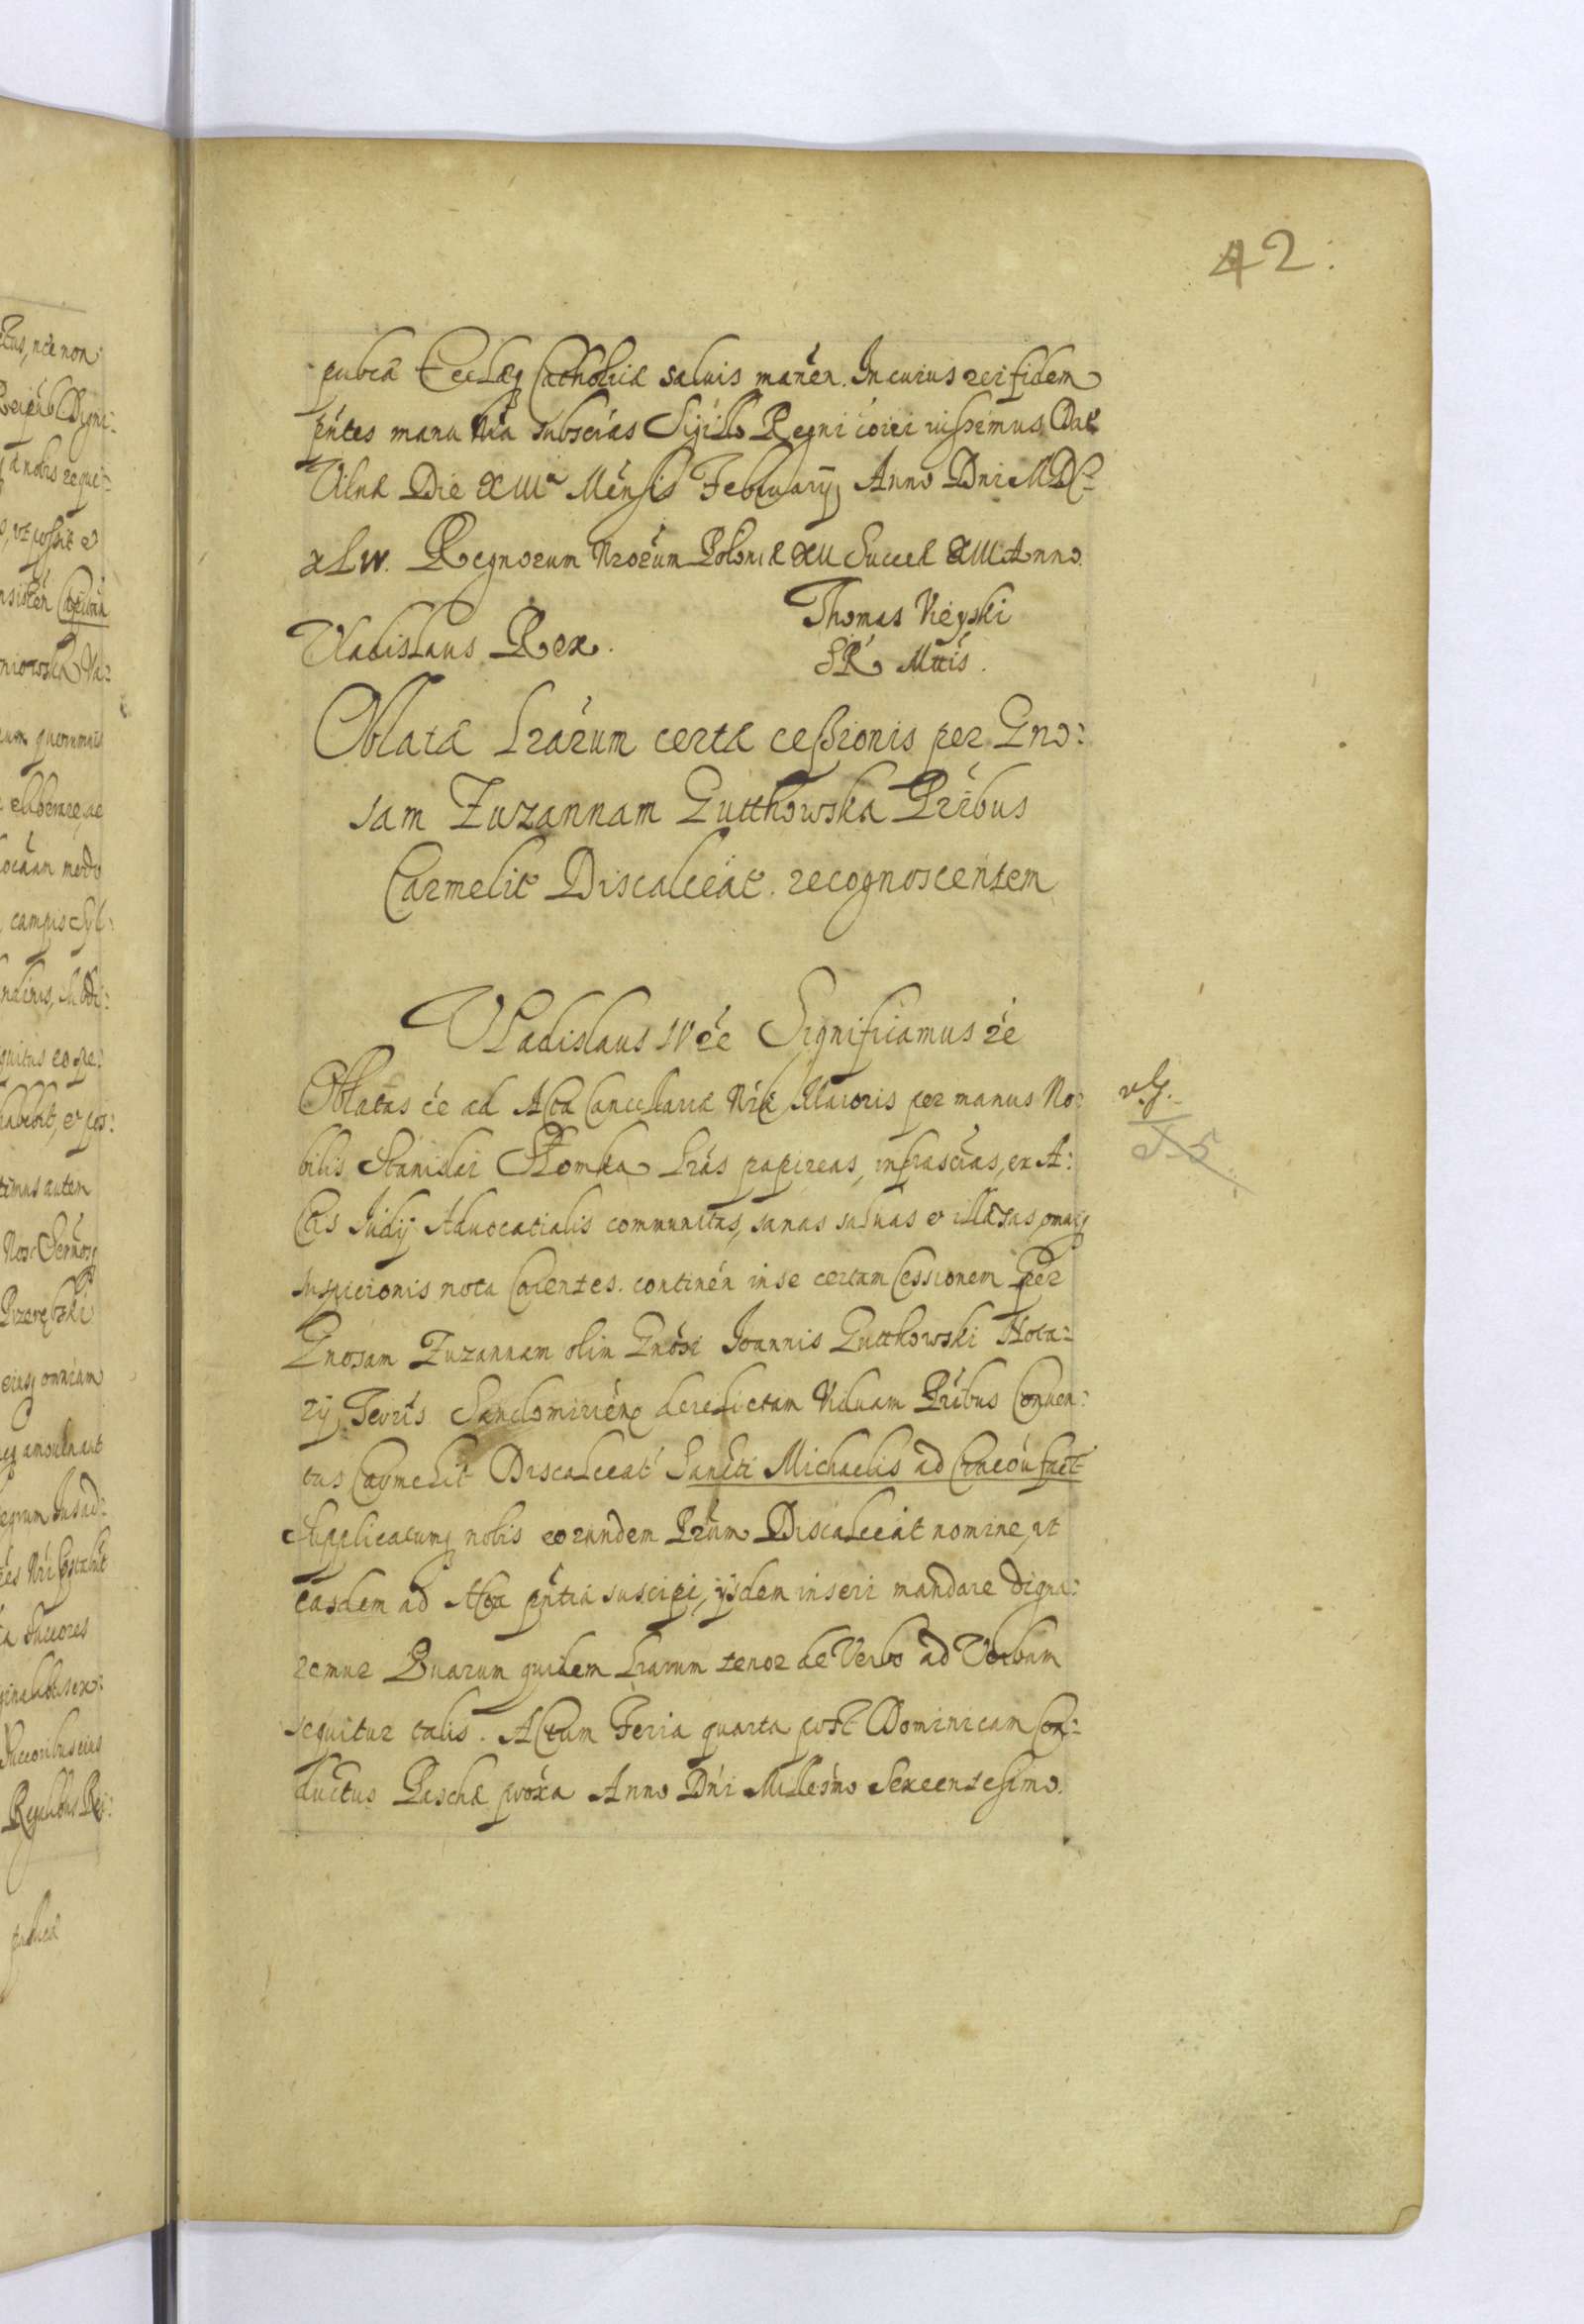 42.
publcae Ecclaeq Catholicae saluis manen. In cuius rei fidem
pntes manu nra subscras Sigillo Regni coiri iussimus. Dat
Vilnae Die XIIIa Mensis February Anno Dni MDC
XLIV. Regnorum Nrorum Poloniae XII Suecae XIII Anno.
Vladislaus Rex.
Thomas Uieyski
S R Mttis.
Oblata Lrarum certae cessionis per Gno:
sam Zuzannam Gutthowska Pribus
Carmelit Discalceat. recognoscentem
Vladislaus IV etc Significamus etc
Oblatas ee ad Acta Cancellariae Nrae Maioris per manus No:
bilis Stanislai Słomka Lras papireas, infrascras, ex A:
ctis Judij Aduocatialis communitas, sanas saluas et illaesas, omniq
suspicionis nota carentes. continen in se certam cessionem per
Gnosam Zuzannam olim Gnosi Joannis Gutthowski Nota:
rij Terris Sandomirien derelictam Viduam Pribus Conuen:
tus Carmelit Discalceat Sancti Michaelis ad Cracou fact
Supplicatumq nobis eorundem Prum Discalceat nomine, ut
easdem ad Acta pntia suscipi, ijsdem inseri mandare digna:
remur Quarum quidem Lrarum tenor de Verbo ad Verbum
sequitur talis. Actum Feria quarta post Dominicam Con:
ductus Paschae proxa Anno Dni Millesimo Sexcentesimo.